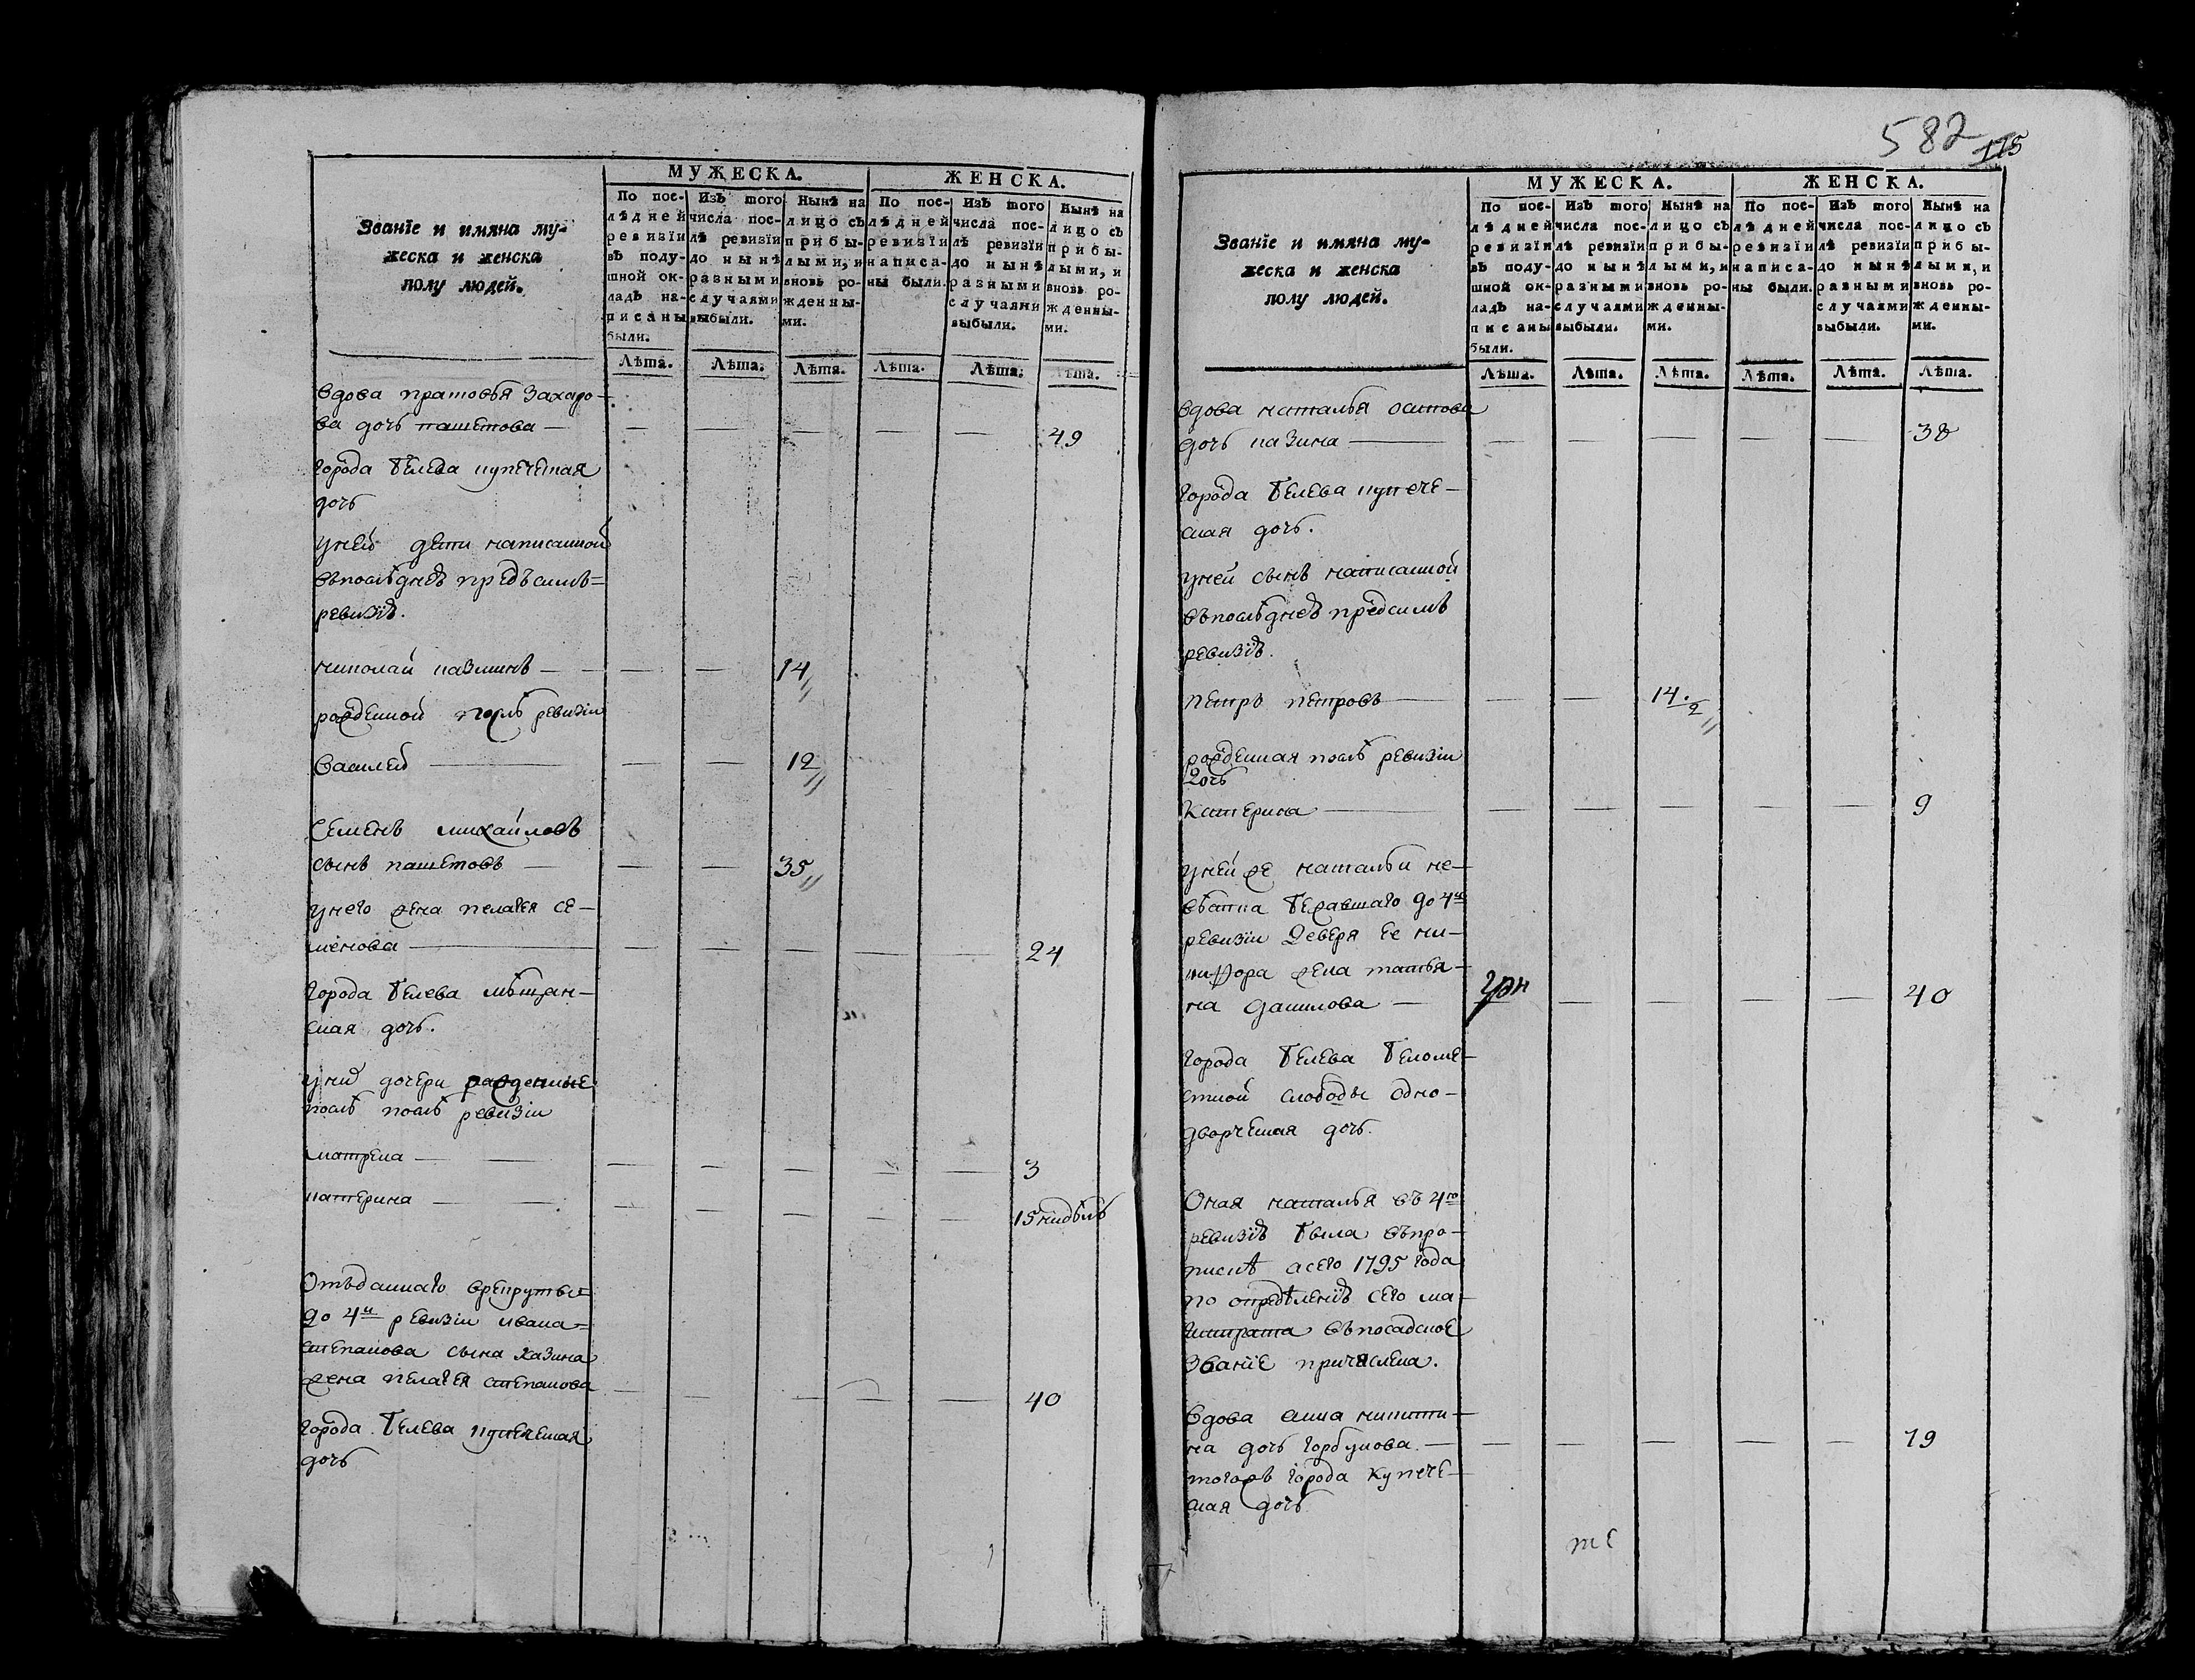 582
115
Званїе и имяна му-
жеска и женска
полу людей.
МУЖЕСКА.
По пос-
лѣдней
ревизїи
въ поду-
шной ок-
ладъ на-
писаны
были.
Лѣта.
Изъ того
числа пос-
лѣ ревизїи
до нынѣ
разными
случаями
выбыли.
Лѣта.
Нынѣ на
лицо съ
прибы-
лыми, и
вновь ро-
жденны-
ми.
Лѣта.
ЖЕНСКА.
По пос-
лѣдней
ревизїи
написа-
ны были.
Лѣта.
Изъ того
числа пос-
лѣ ревизїи
до нынѣ
разными
случаями
выбыли.
Лѣта.
Нынѣ на
лицо съ
прибы-
лыми, и
вновь ро-
жденны-
ми.
Лѣта.
вдова Захаро-
ва дочь — 49
города белева купеческая
дочь
уней дети написанной
въпослѣднеѣ предъсимъ=
ревизїѣ.
николай — 14
рожденной послѣ ревизїи
василей — 12
семенъ михайловъ
сынъ — 35
унего жена пелагея се-
менова — 24
города белева мѣщан-
ская дочь.
униѣ дочери рожденные
послѣ послѣ ревизїи
матрена — 3
катерина — 15 нидѣль
Отъданнаго врекруты=
до 4й ревизїи ивана=
степанова сына казина
жена пелагея степанова — 40
города белева купеческая
дочь
Званїе и имяна му-
жеска и женска
полу людей.
МУЖЕСКА.
По пос-
лѣдней
ревизїи
въ поду-
шной ок-
ладъ на-
писаны
были.
Лѣта.
Изъ того
числа пос-
лѣ ревизїи
до нынѣ
разными
случаями
выбыли.
Лѣта.
Нынѣ на
лицо съ
прибы-
лыми, и
вновь ро-
жденны-
ми.
Лѣта.
ЖЕНСКА.
По пос-
лѣдней
ревизїи
написа-
ны были.
Лѣта.
Изъ того
числа пос-
лѣ ревизїи
до нынѣ
разными
случаями
выбыли.
Лѣта.
Нынѣ на
лицо съ
прибы-
лыми, и
вновь ро-
жденны-
ми.
Лѣта.
вдова наталья осипова
дочь казина — 38
города белева купече-
ская дочь.
уней сынъ написанной
въпослѣднеѣ предсимъ
ревизїѣ.
петръ петровъ — 14. 2
рожденная послѣ ревизїи
дочь
Катерина — 9
уней же натальи не-
вѣстка бежавшаго до 4й
ревизїи деверя ее ни-
кифора жена татья-
на данилова — 40
города белева беломе-
стной слободы одно-
дворческая дочь.
Оная наталья въ 4ю
ревизїѣ была въпро-
пискѣ асего 1795 года
по опредѣленїѣ сего ма-
гистрата въпосадское
званїе причислена.
вдова анна никити-
на дочь горбунова. — 19
тогожъ города купече-
ская дочь
те